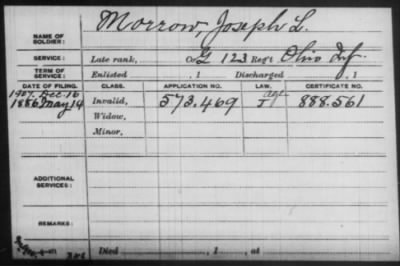 Morrow, Joseph L.
NAME OF SOLDIER:
SERVICE: Late rank, Co G 123 Reg't Ohio Inf.
TERM OF SERVICE: Enlisted , 1 Discharged , 1
DATE OF FILING. CLASS. APPLICATION NO. LAW. CERTIFICATE NO.
1907. Dec. 16 age
1886 May 14 Invalid, 573.469 J 888.561
Widow,
Minor,
ADDITIONAL SERVICES:
REMARKS:
Died , 1 , at